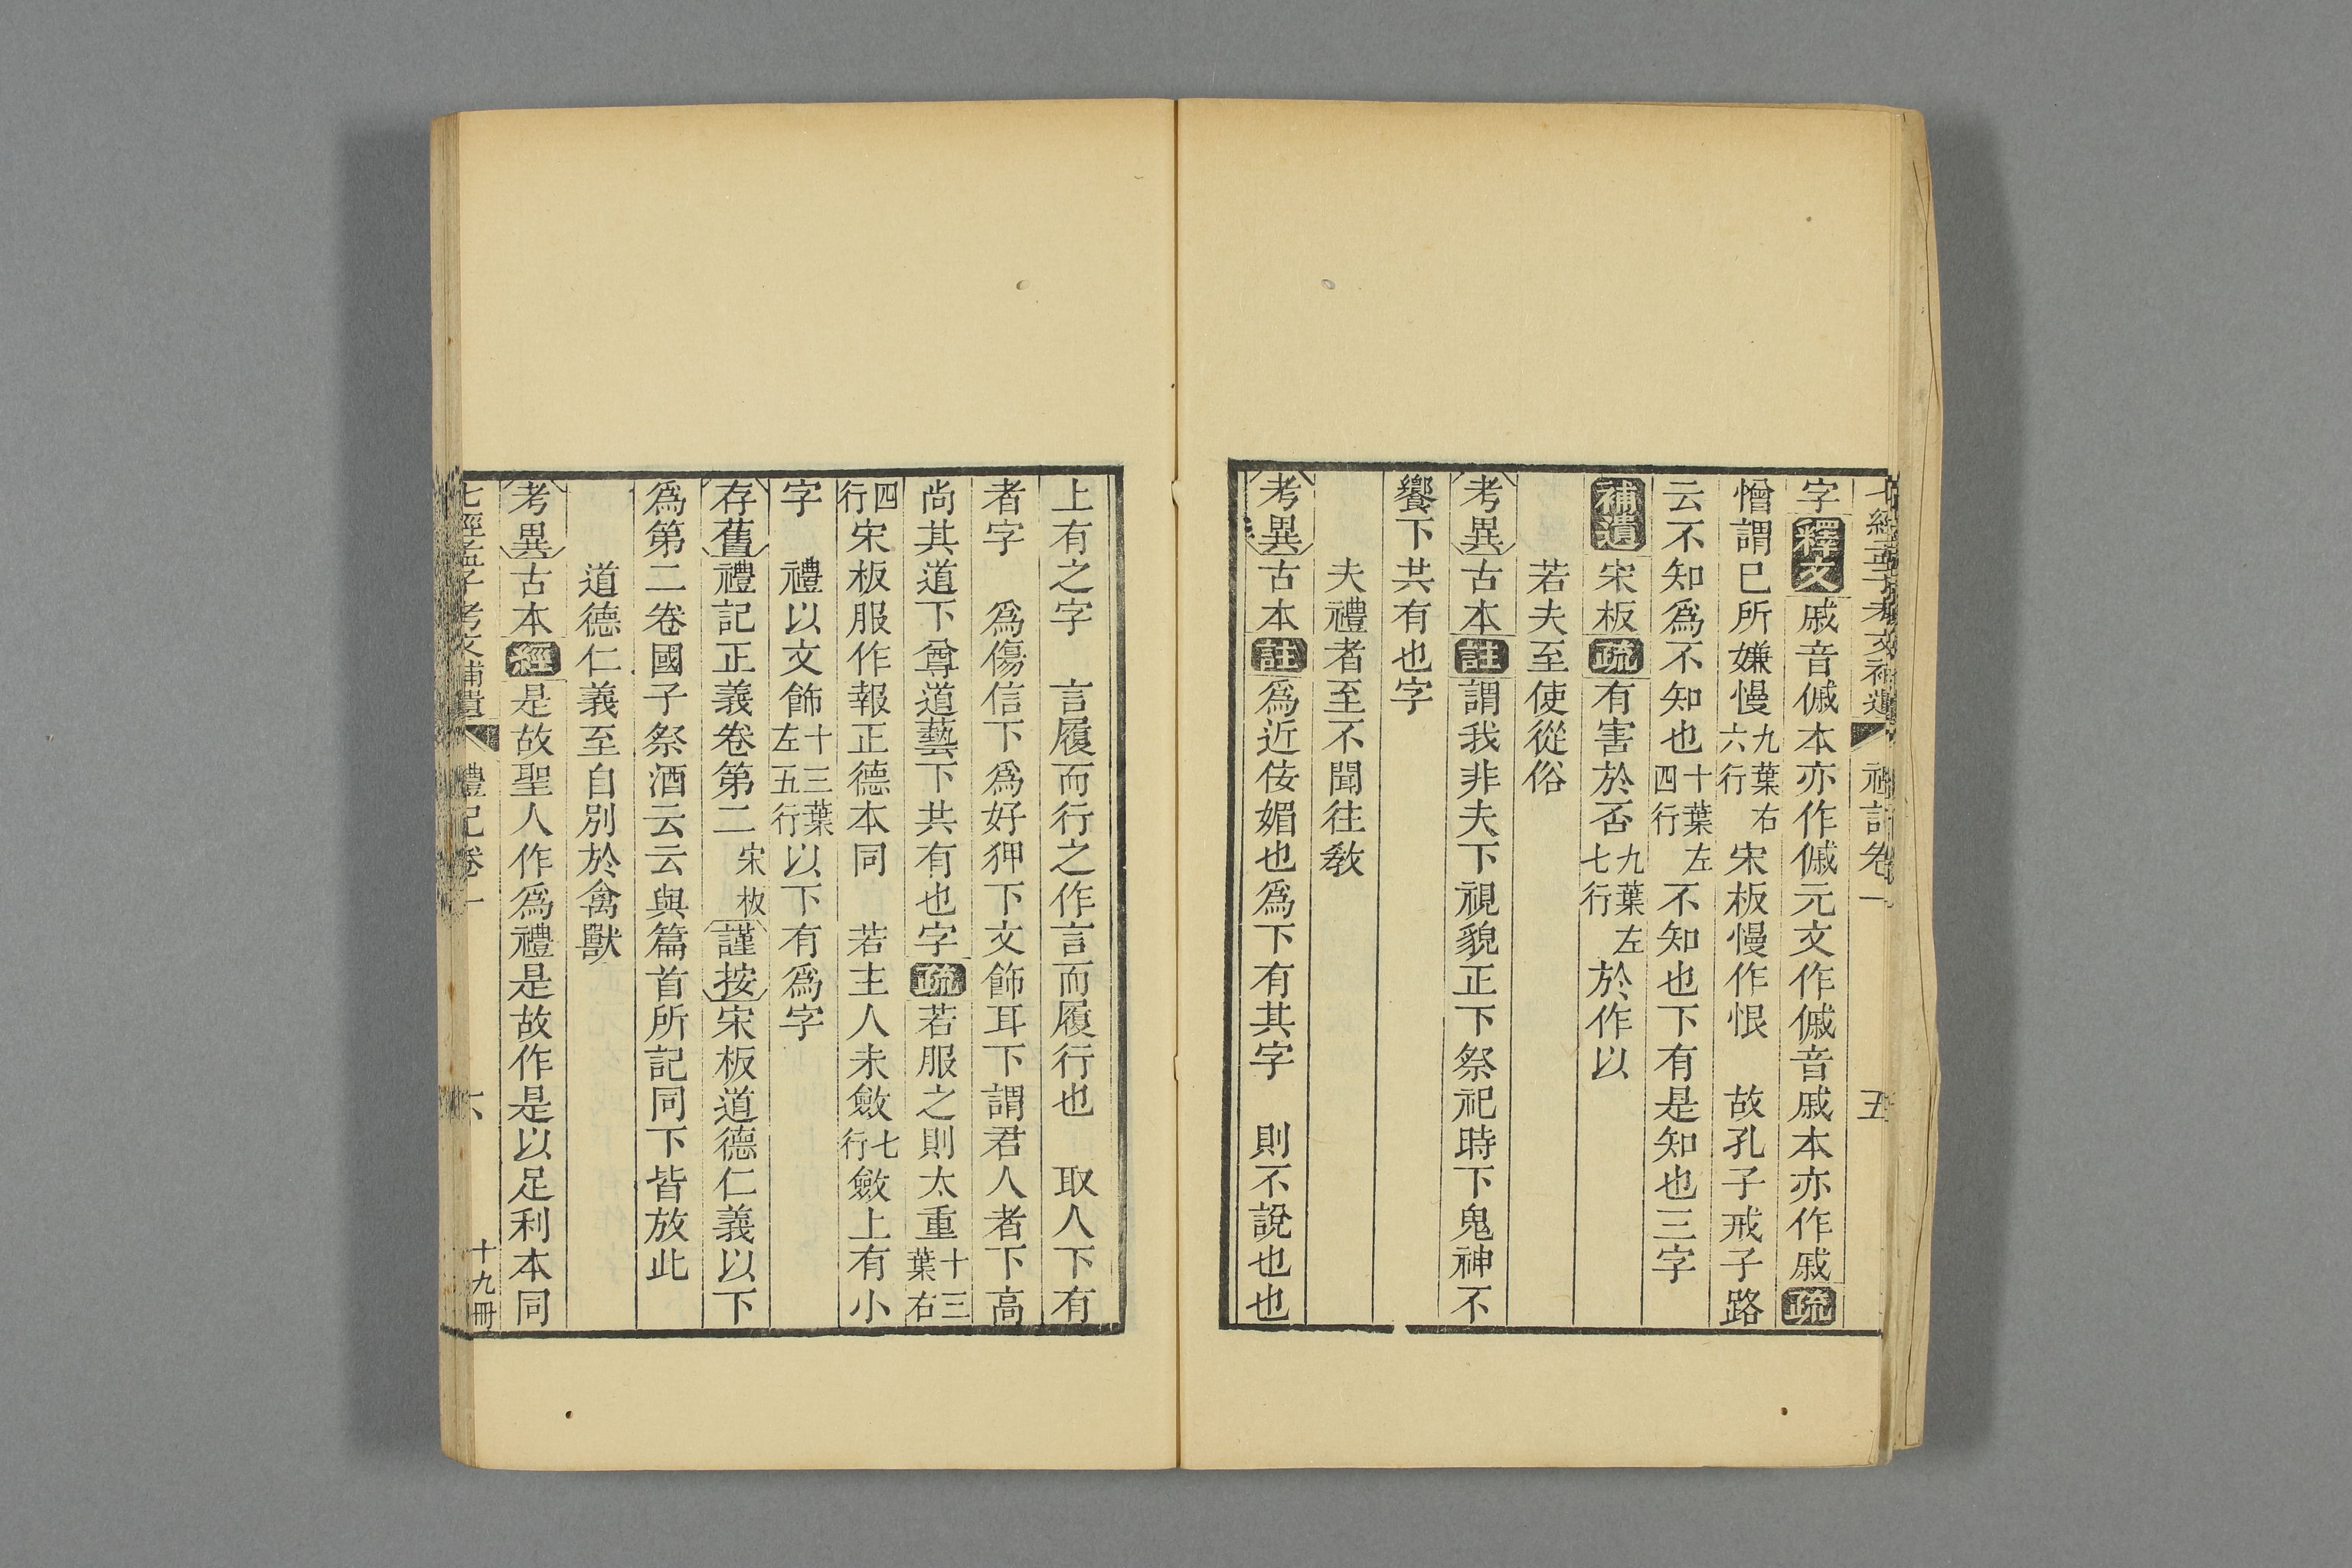 七經孟子考文補遺 禮記卷一 五
字釋文戚音傶本亦作傶元文作傶音戚本亦作戚疏
憎謂已所嫌慢九葉右六行宋板慢作恨 故孔子戒子路
云不知爲不知也十葉左四行不知也下有是知也三字
補遺宋板疏有害於否九葉左七行於作以
若夫至使從俗
考異古本註謂我非夫下視貌正下祭祀時下鬼神不
饗下共有也字
夫禮者至不聞往敎
考異古本註爲近佞媚也爲下有其字 則不說也也
上有之字 言履而行之作言而履行也 取人下有
者字 爲傷信下爲好狎下文飾耳下謂君人者下高
尚其道下尊道藝下共有也字疏若服之則太重十三葉右
四行宋板服作報正德本同 若主人未斂七行斂上有小
字 禮以文飾十三葉左五行以下有爲字
存舊禮記正義卷第二宋板謹按宋板道德仁義以下
爲第二卷國子祭酒云云與篇首所記同下皆放此
道德仁義至自別於禽獸
考異古本經是故聖人作爲禮是故作是以足利本同
七經孟子考文補遺 禮記卷一 六 十九冊